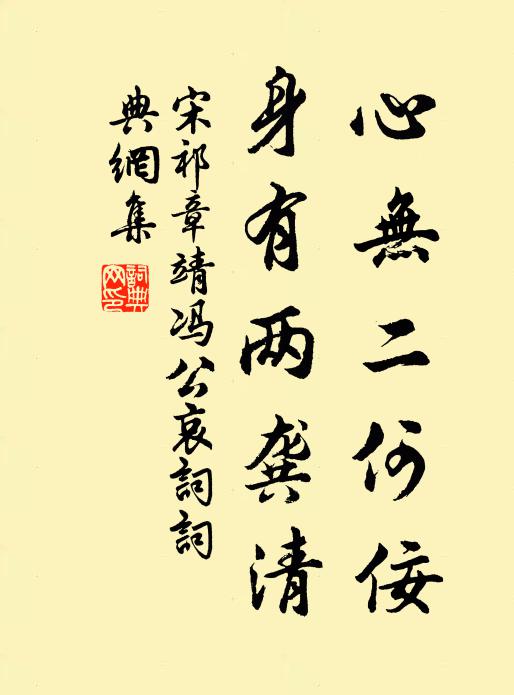 心無二何佞
身有两龚清
宋祁章靖冯公哀詞詞
典網集
詞典
网印